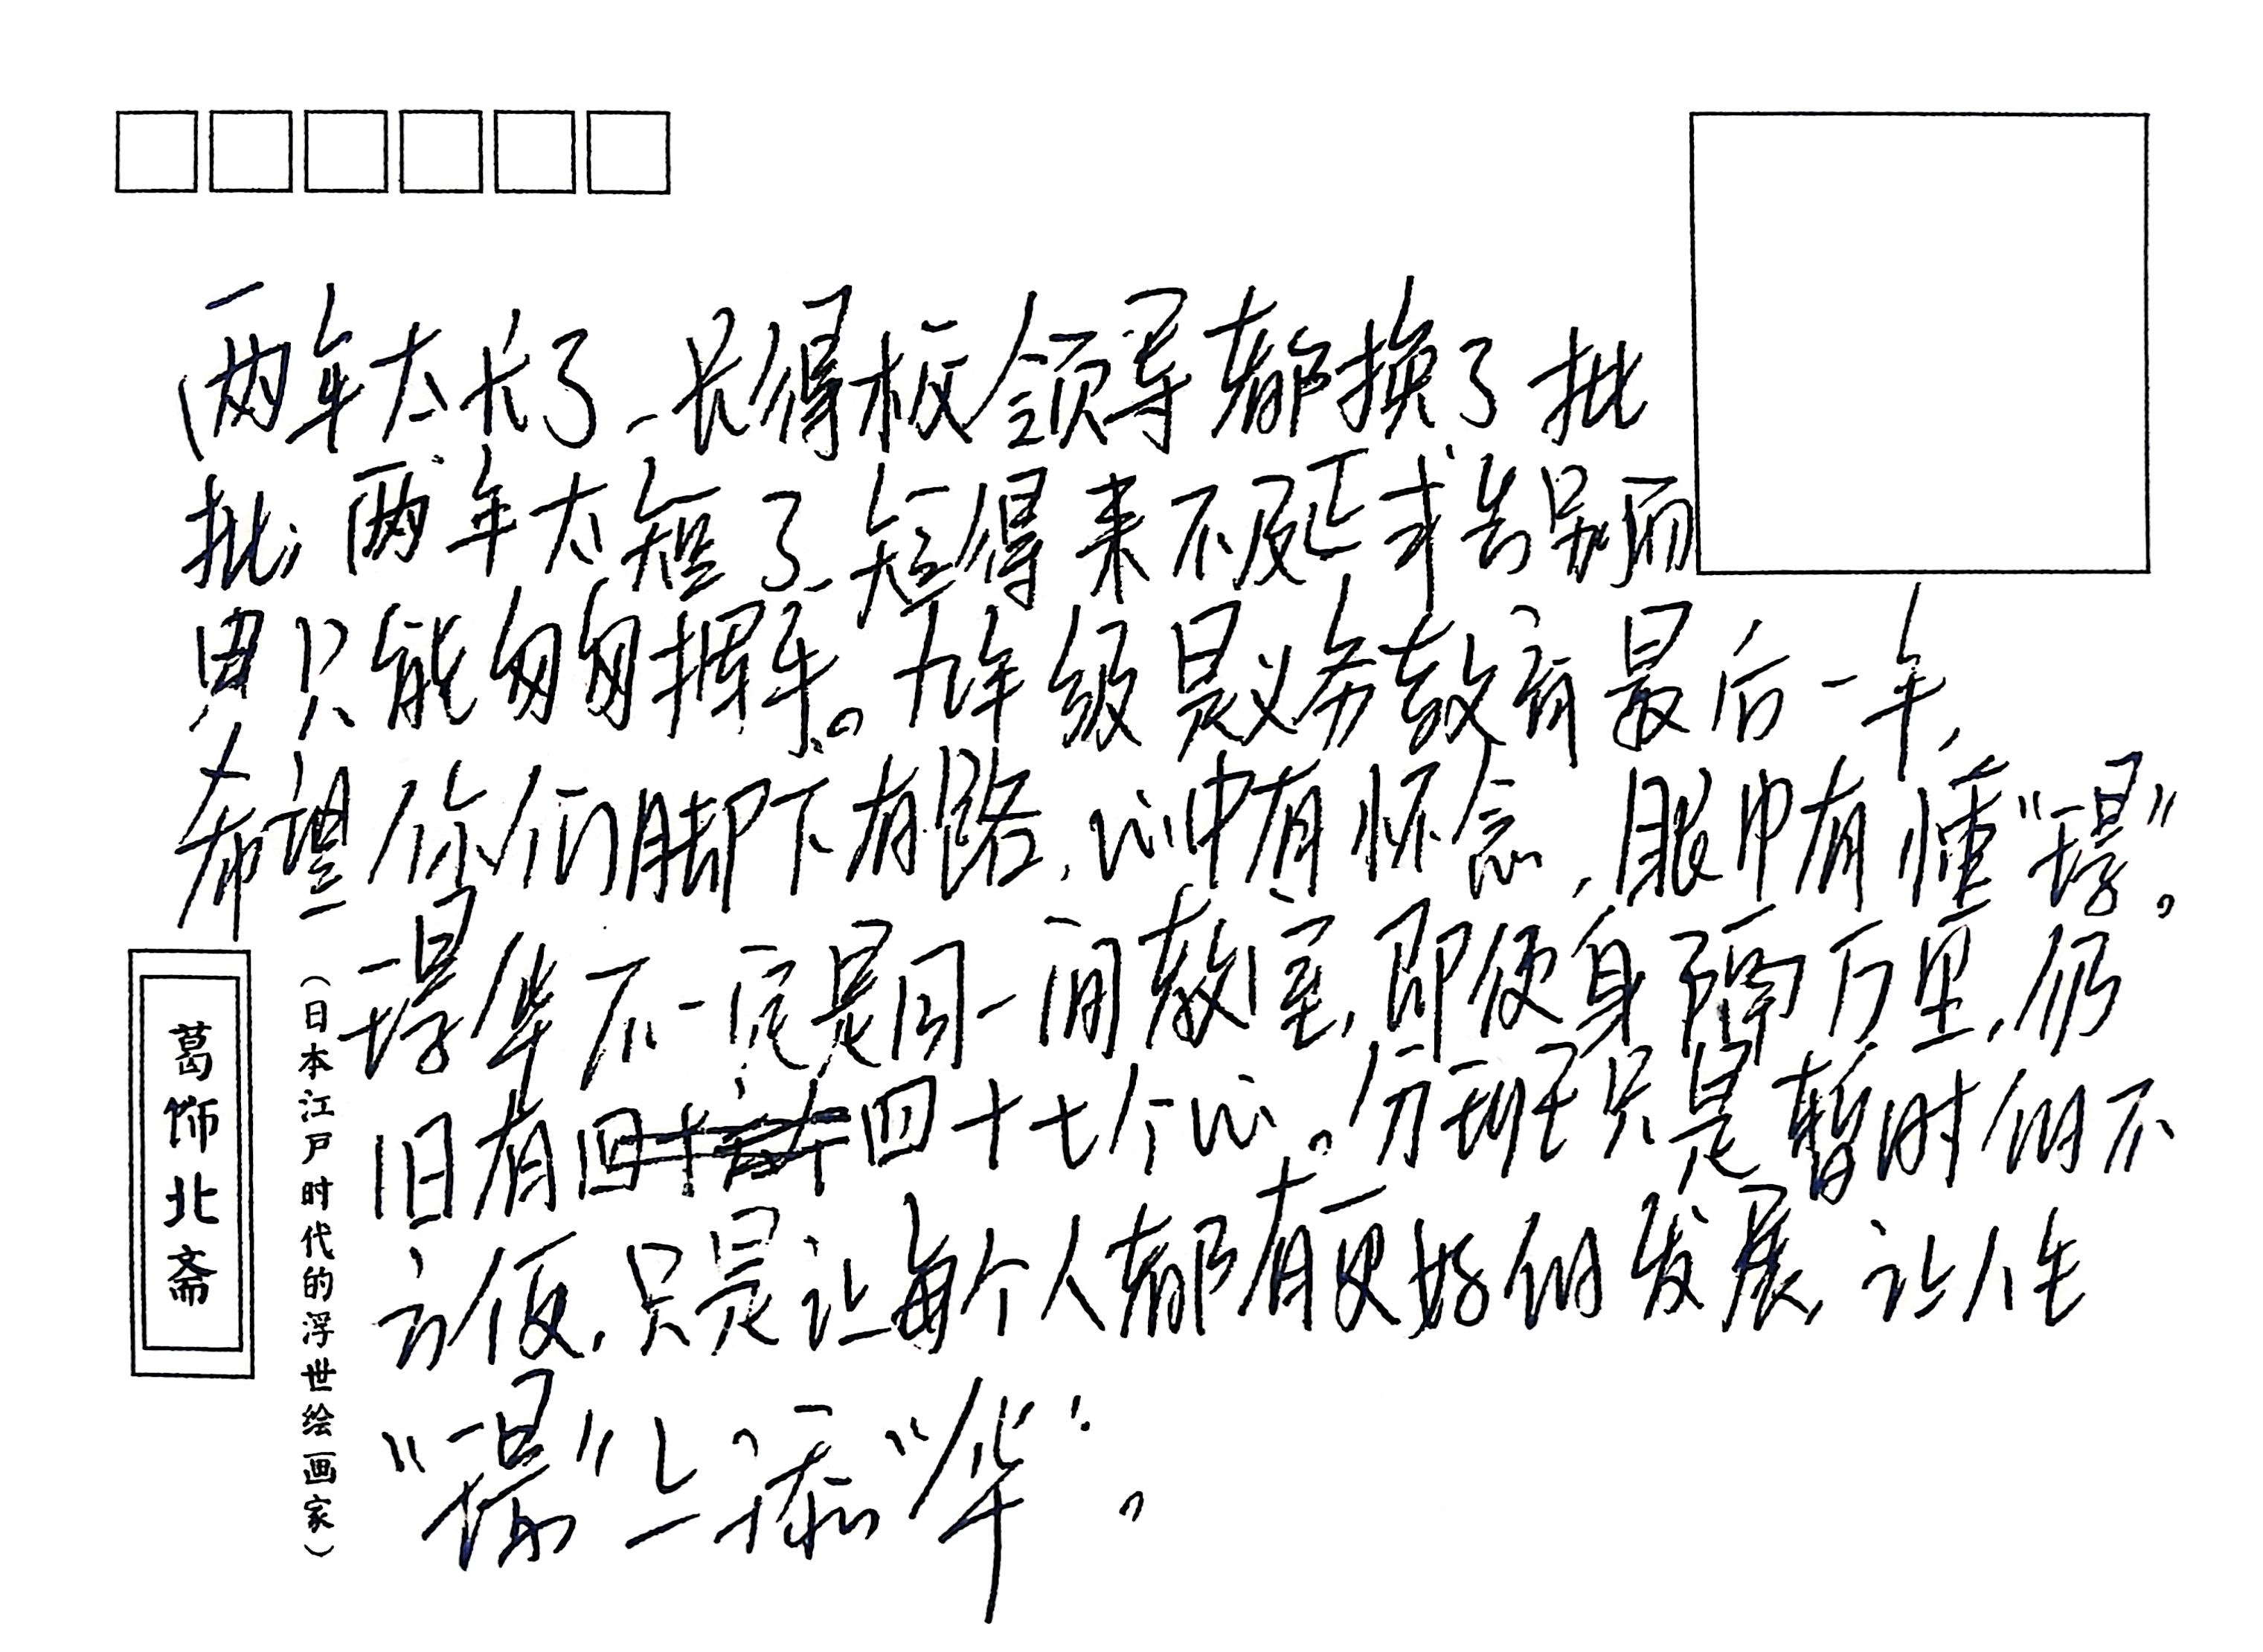 两年太长了，长得校领导都换了批
批；两年太短了，短得来不及正式告别而
只能匆匆挥手。九年级是义务教育最后一年，
希望你们脚下有路，心中有怀念，眼中有憧“璟”。
璟华不一定是同一间教室，即使身隔万里，仍
旧有四十七个心。分班只是暂时的不
方便，只是让每个人都有更好的发展，让人生
“璟”上添“华”。
葛饰北斋
（日本江户时代的浮世绘画家）